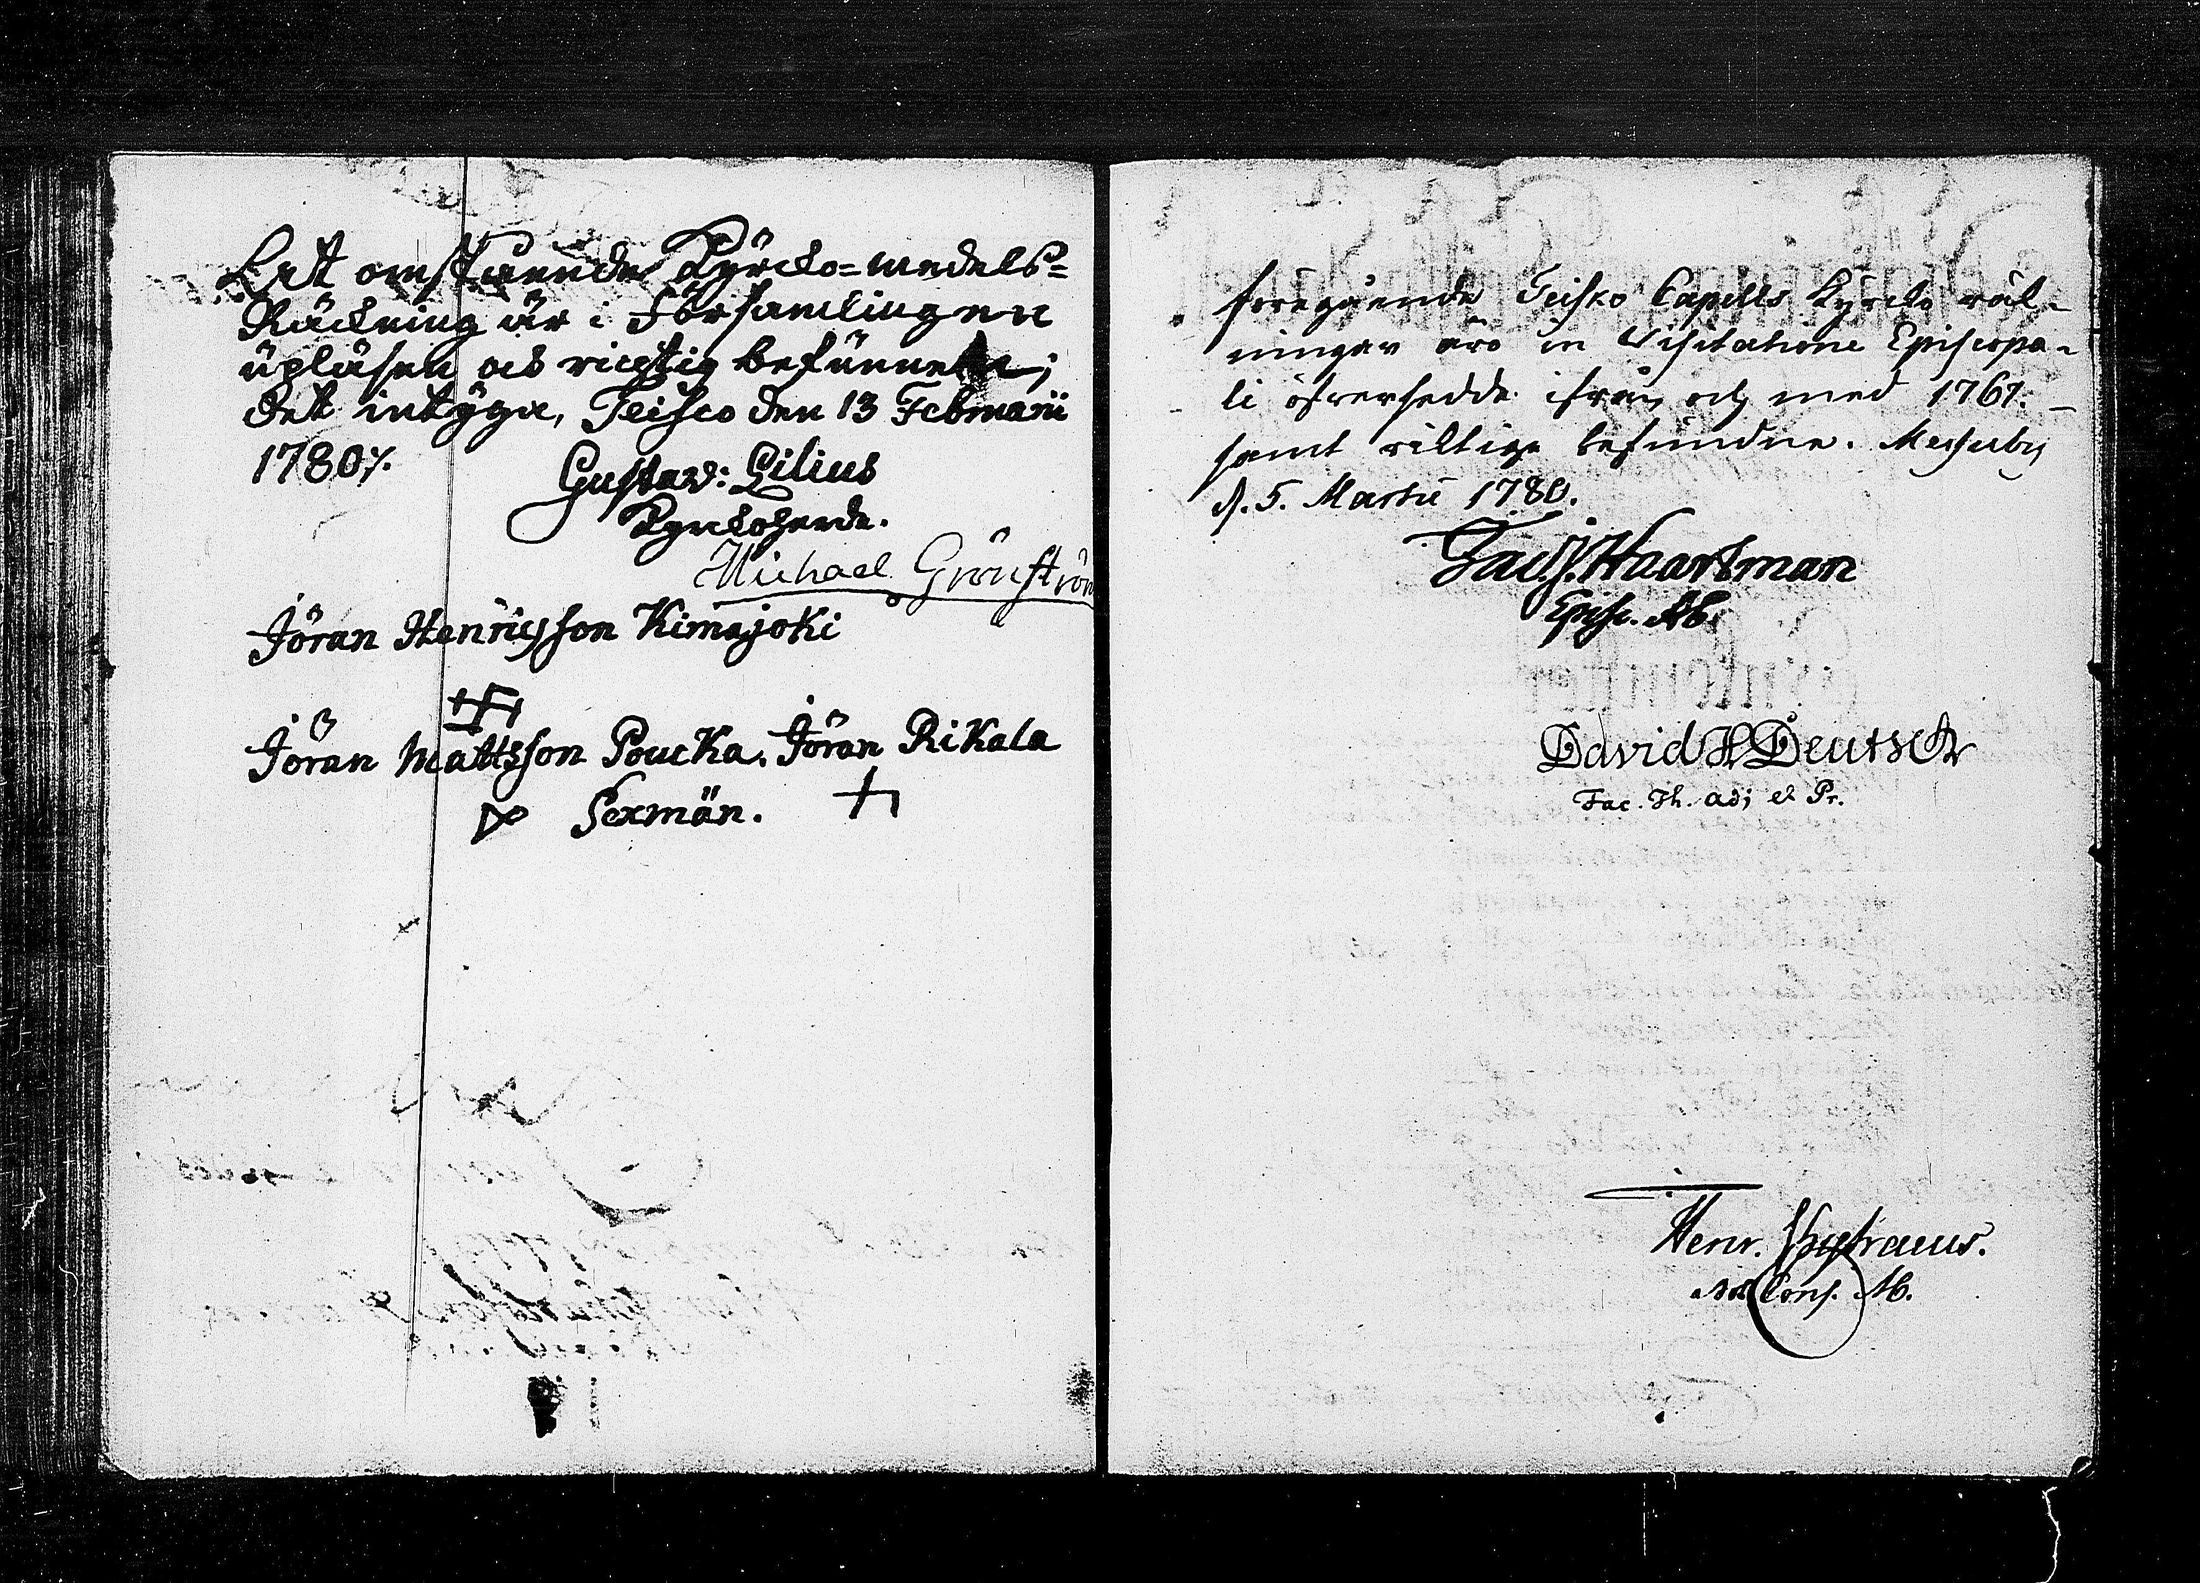 Det omstående Kyrcko=medels=
Räckning är i Församlingen
upläsen och richtig befunnen;
det intyga, Teisco den 13 Februarii
1780 ⁒.
Gustav: Lilius
Kyrckoherde.
Michael Grönström
Jöran Henricsson Kimajoki
Jöran Mattsson Poucka. Jöran Rikala
Sexmän.
föregående Teisko Capells Kyrcko räk-
ningar äro in Visitatione Episcopa-
li öfversedde ifrån och med 1761.
samt riktige befundne. Messuby
d. 5. Martii 1780.
Jac. J. Haartman
Episc. Ab.
David H Deutsch
Fac. Th. adj et Pr.
Henr.
Cons. Ab.